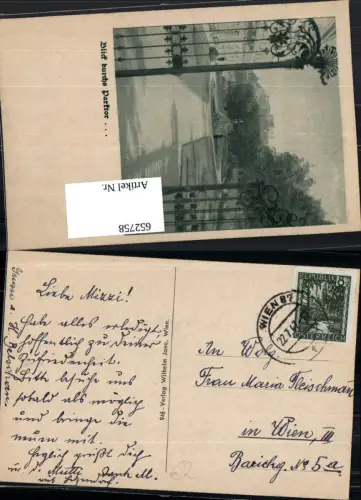 Blick durchs Parktor . . .
Artikel Nr.
652758
Liebe Mizzi!
Habe alles erledigt
hoffentlich zu deiner
Zufriedenheit.
Bitte besuche uns
sobald als möglich
und bringe die
neuen mit.
Herzlich grüßt dich
u. d. Mutti
948 - Verlag Wilhelm Jans, Wien.
WIEN 87
REPUBLIK
8
ÖSTERREICH
An
Frau Maria Fleischmann
in Wien, III
Barichg. No 5a